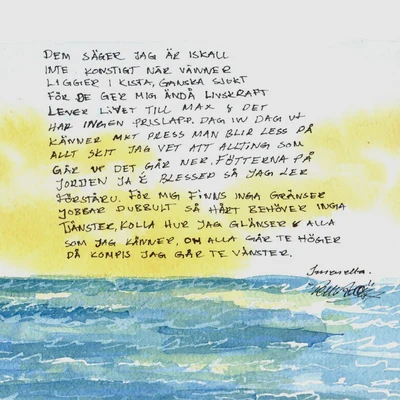 DEM SÄGER JAG ÄR ISKALL
INTE KONSTIGT NÄR VÄNNER
LIGGER I KISTA, GANSKA SJUKT
FÖR DE GER MIG ÄNDÅ LIVSKRAFT
LEVER LIVET TILL MAX & DET
HAR INGEN PRISLAPP. DAG IN DAG UT
KÄNNER MKT PRESS MAN BLIR LESS PÅ
ALLT SKIT JAG VET ATT ALLTING SOM
GÅR UT DET GÅR NER. FÖTTERNA PÅ
JORDEN JA E BLESSED SÅ JAG LER
FÖRSTÅRU. FÖR MIG FINNS INGA GRÄNSER
JOBBAR DUBBULT SÅ HÅRT BEHÖVER INGA
TJÄNSTER, KOLLA HUR JAG GLÄNSER & ALLA
SOM JAG KÄNNER, OM ALLA GÅR TE HÖGER
DÅ KOMPIS JAG GÅR TE VÄNSTER.